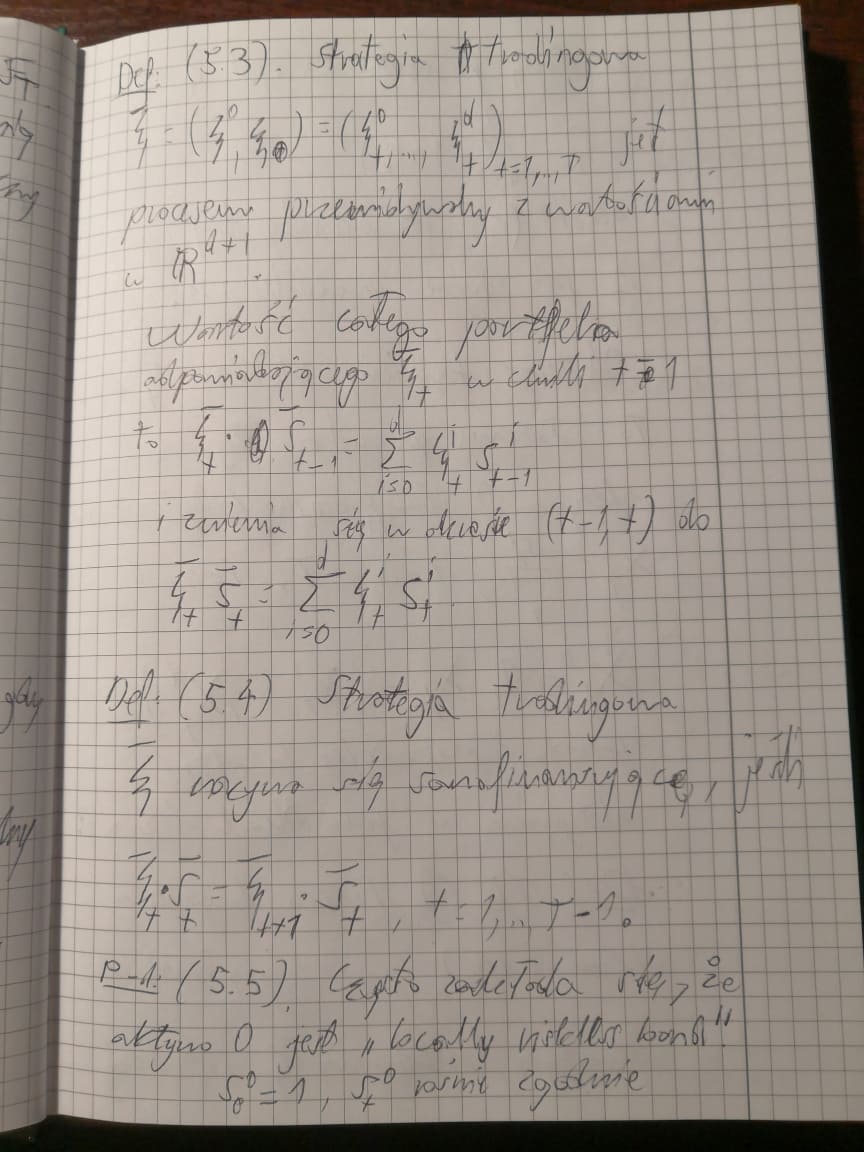 Def: (5.3). Strategia tradingowa
ξ̄ = (ξ⁰, ξ) = (ξ⁰ₜ, ..., ξᵈₜ)ₜ₌₁,...,T jet
procesem przewidywalny z wartościami
w ℝᵈ⁺¹.
Wartość całego portfela
odpowiadającego ξ̄ₜ w chwili t-1
to ξ̄ₜ · S̄ₜ₋₁ = Σᵢ₌₀ᵈ ξⁱₜ Sⁱₜ₋₁
i zmienia się w okresie (t-1, t) do
ξ̄ₜ S̄ₜ = Σᵢ₌₀ᵈ ξⁱₜ Sⁱₜ
Def. (5.4) Strategia tradingowa
ξ̄ nazywa się samofinansującą, jeśli
ξ̄ₜ · S̄ₜ = ξ̄ₜ₊₁ · S̄ₜ, t=1,...T-1.
P-d: (5.5). Często zakłada się, że
aktywo 0 jest „locally riskless bond"
S₀⁰ = 1, Sₜ⁰ rośnie zgodnie
gdy